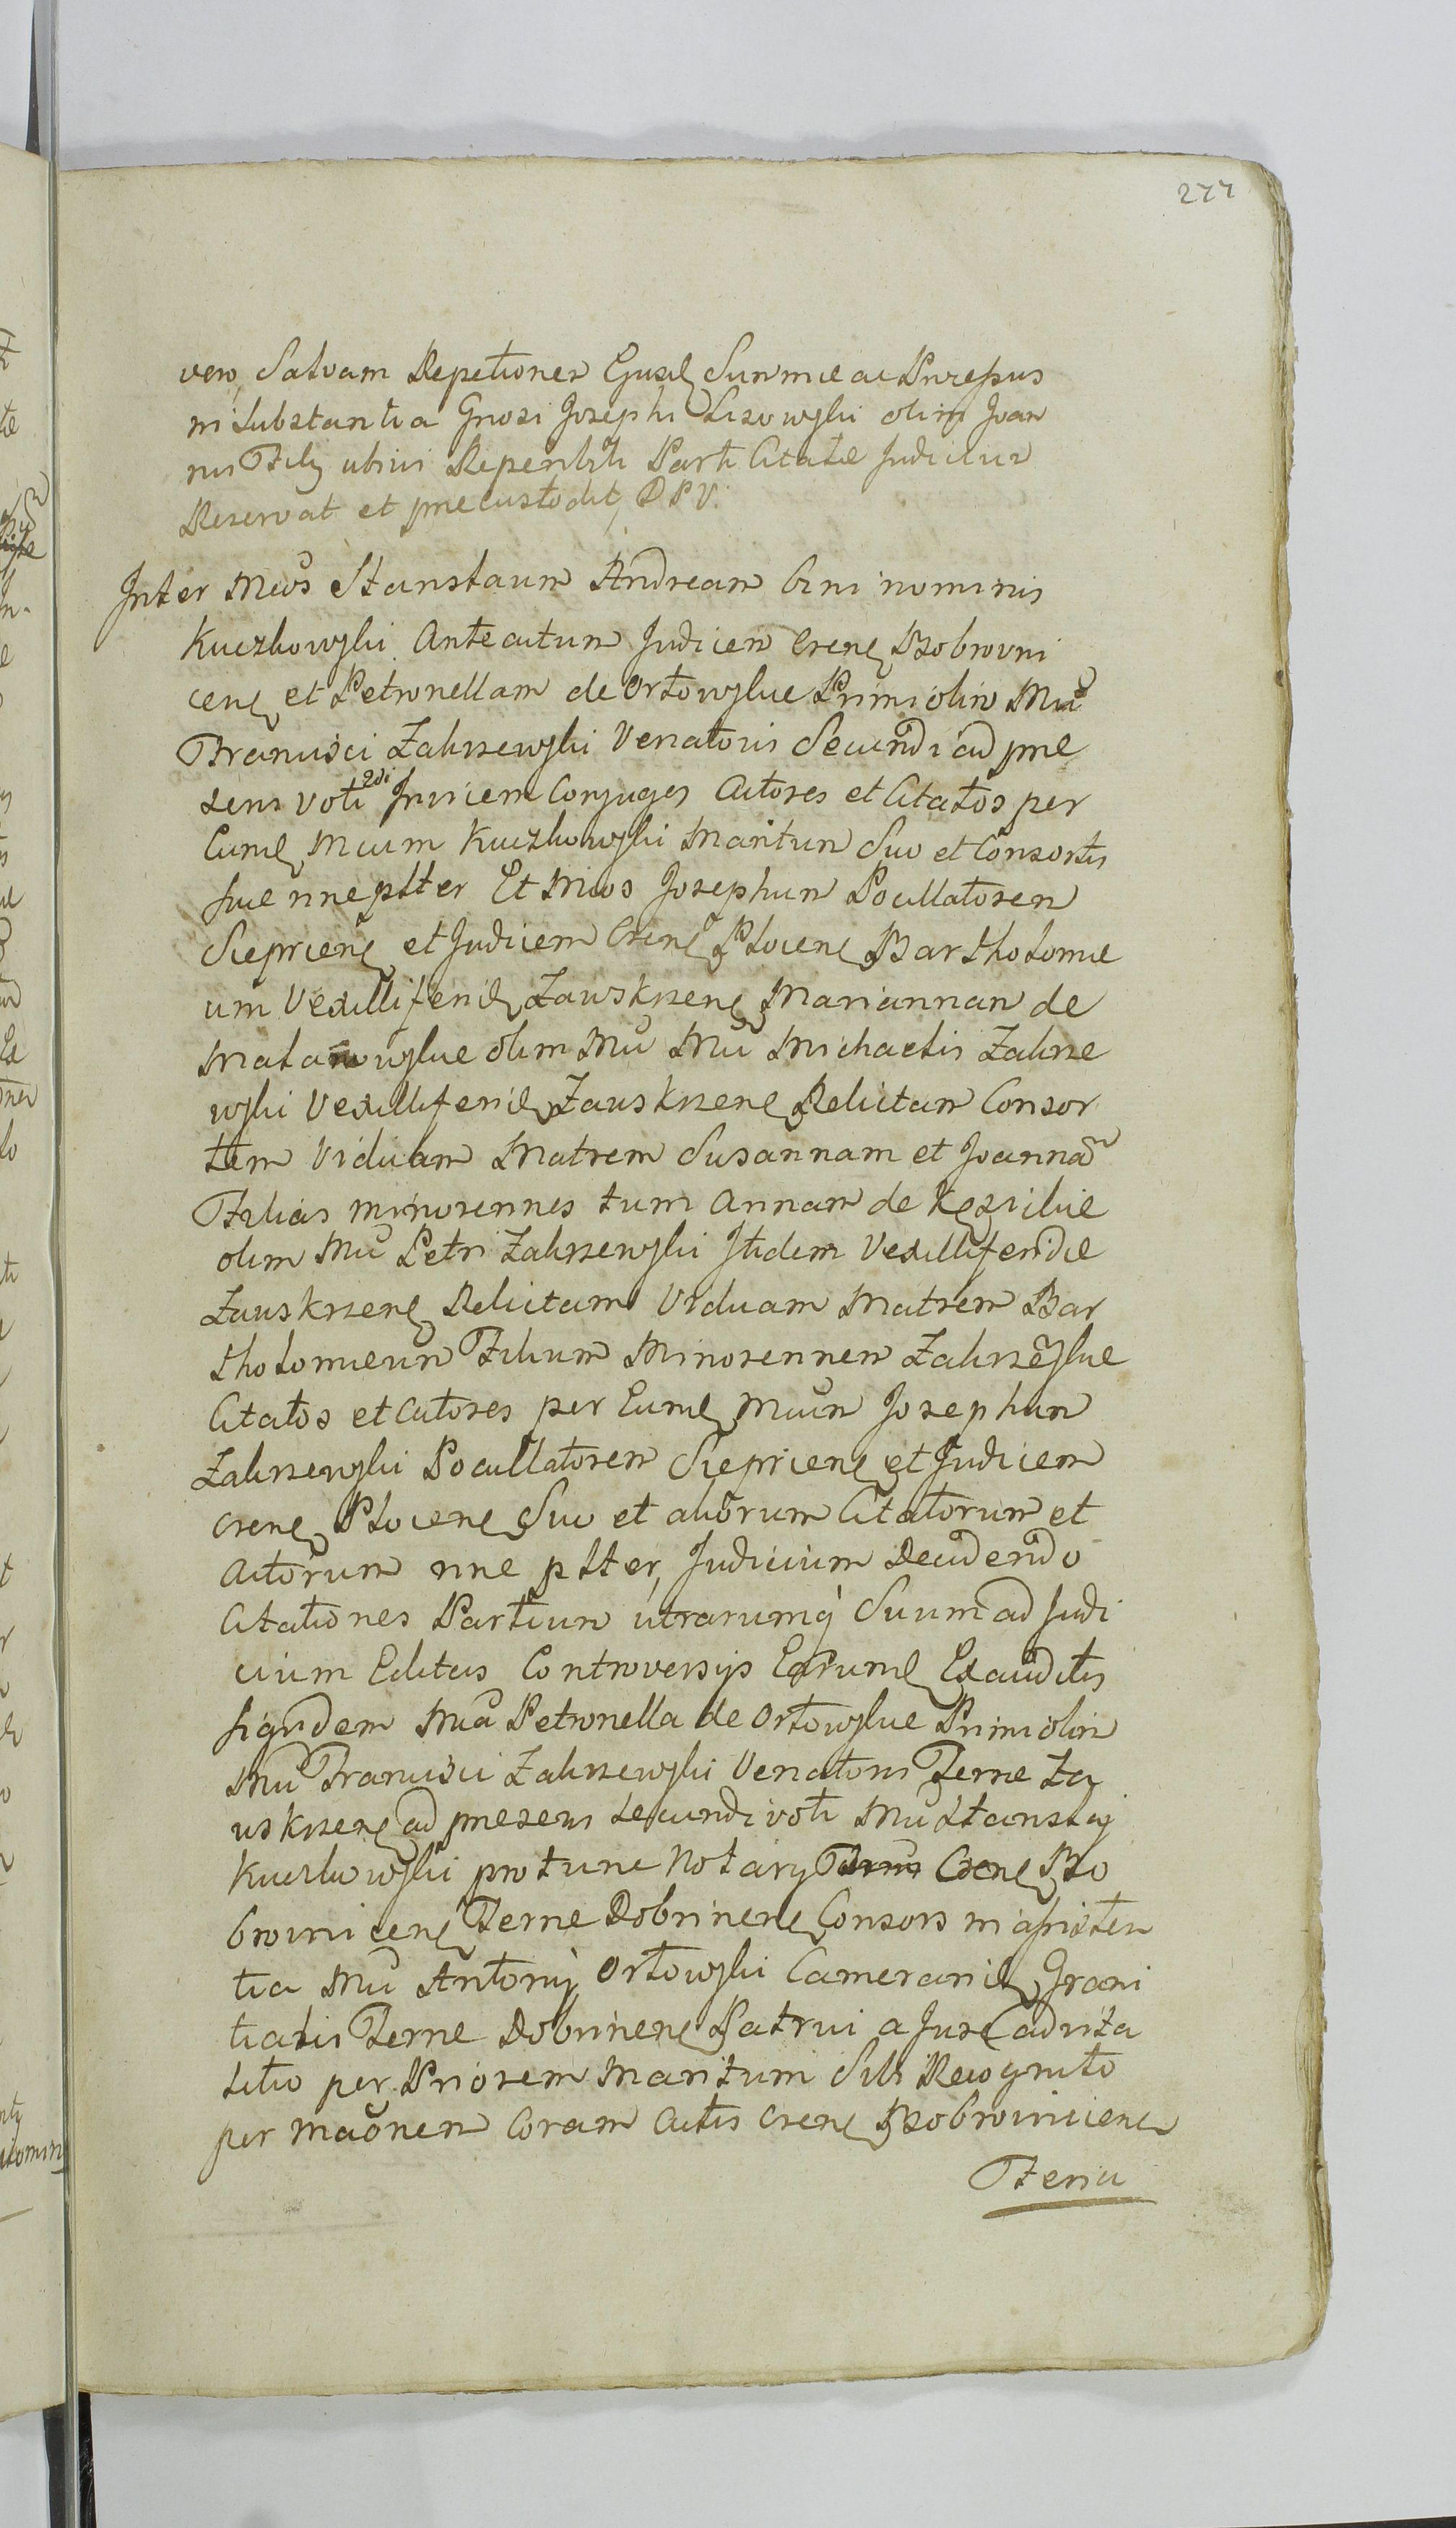 277
vero, Salvam Repetitionem Ejusd Summae ac Praepus
in Substantia Gnosi Josephi Lisowski olim Joan
nis Filij ubivis Reperibili Parti Citatae Judicium
Reservat et praecustodit, D P V.
Inter Mcos Stanislaum Andream bini nominis
Kuczkowski Antecutum Judicem Crene Bobrovni
cene et Petronellam de Orłowskie Primi olim Mci
Francisci Zakrzewski Venatoris Secundi ad prae
sens voti 2di Invicem Conjuges Actores et Citatos per
Eund Mcum Kuczkowski Maritum Suo et Consortis
suae nne pltter Et Mcos Josephum Pocillatorem
Sieprcene et Judicem Crene Plocene Bartholomae
um Vexilliferid Zawskrzene Mariannam de
Mata wskie olim Mci Mci Michaelis Zakrze
wski Vexilliferid Zawskrzene Relictam Consor
tem Viduam Matrem Susannam et Joannam
Filias minorennes tum Annam de Kęzickie
olim Mci Petri Zakrzewski Itidem Vexilliferidae
Zawskrzene Relictam Viduam Matrem Bar
tholomaeum Filium Minorennem Zakrzeskie
Citatos et Actores per Eund Mcum Josephum
Zakrzewski Pocillatorem Sieprcene et Judicem
Crene Plocene Suo et aliorum Citatorum et
Actorum nne pltter, Judicium Decidendo
Citationes Partium utrarumq Suum ad Judi
cium Editas Controversijs Earumd Exauditis
siquidem Mca Petronella de Orłowskie Primi olim
Mci Francisci Zakrzewski Venatoris Terrae Za
wskrzene ad praesens secundi voti Mci Stanislai
Kuczkowski pro tunc Notarij Crene Bo
brovnicene Terrae Dobrinene Consors in assisten
tia Mci Antonij Orłowski Camerarid Grani
tialis Terrae Dobrinene Patrui a Jure advita
litio per Priorem Maritum Sibi Recognito
per Maonem Coram Actis Crene Bobrovnicene
Feria